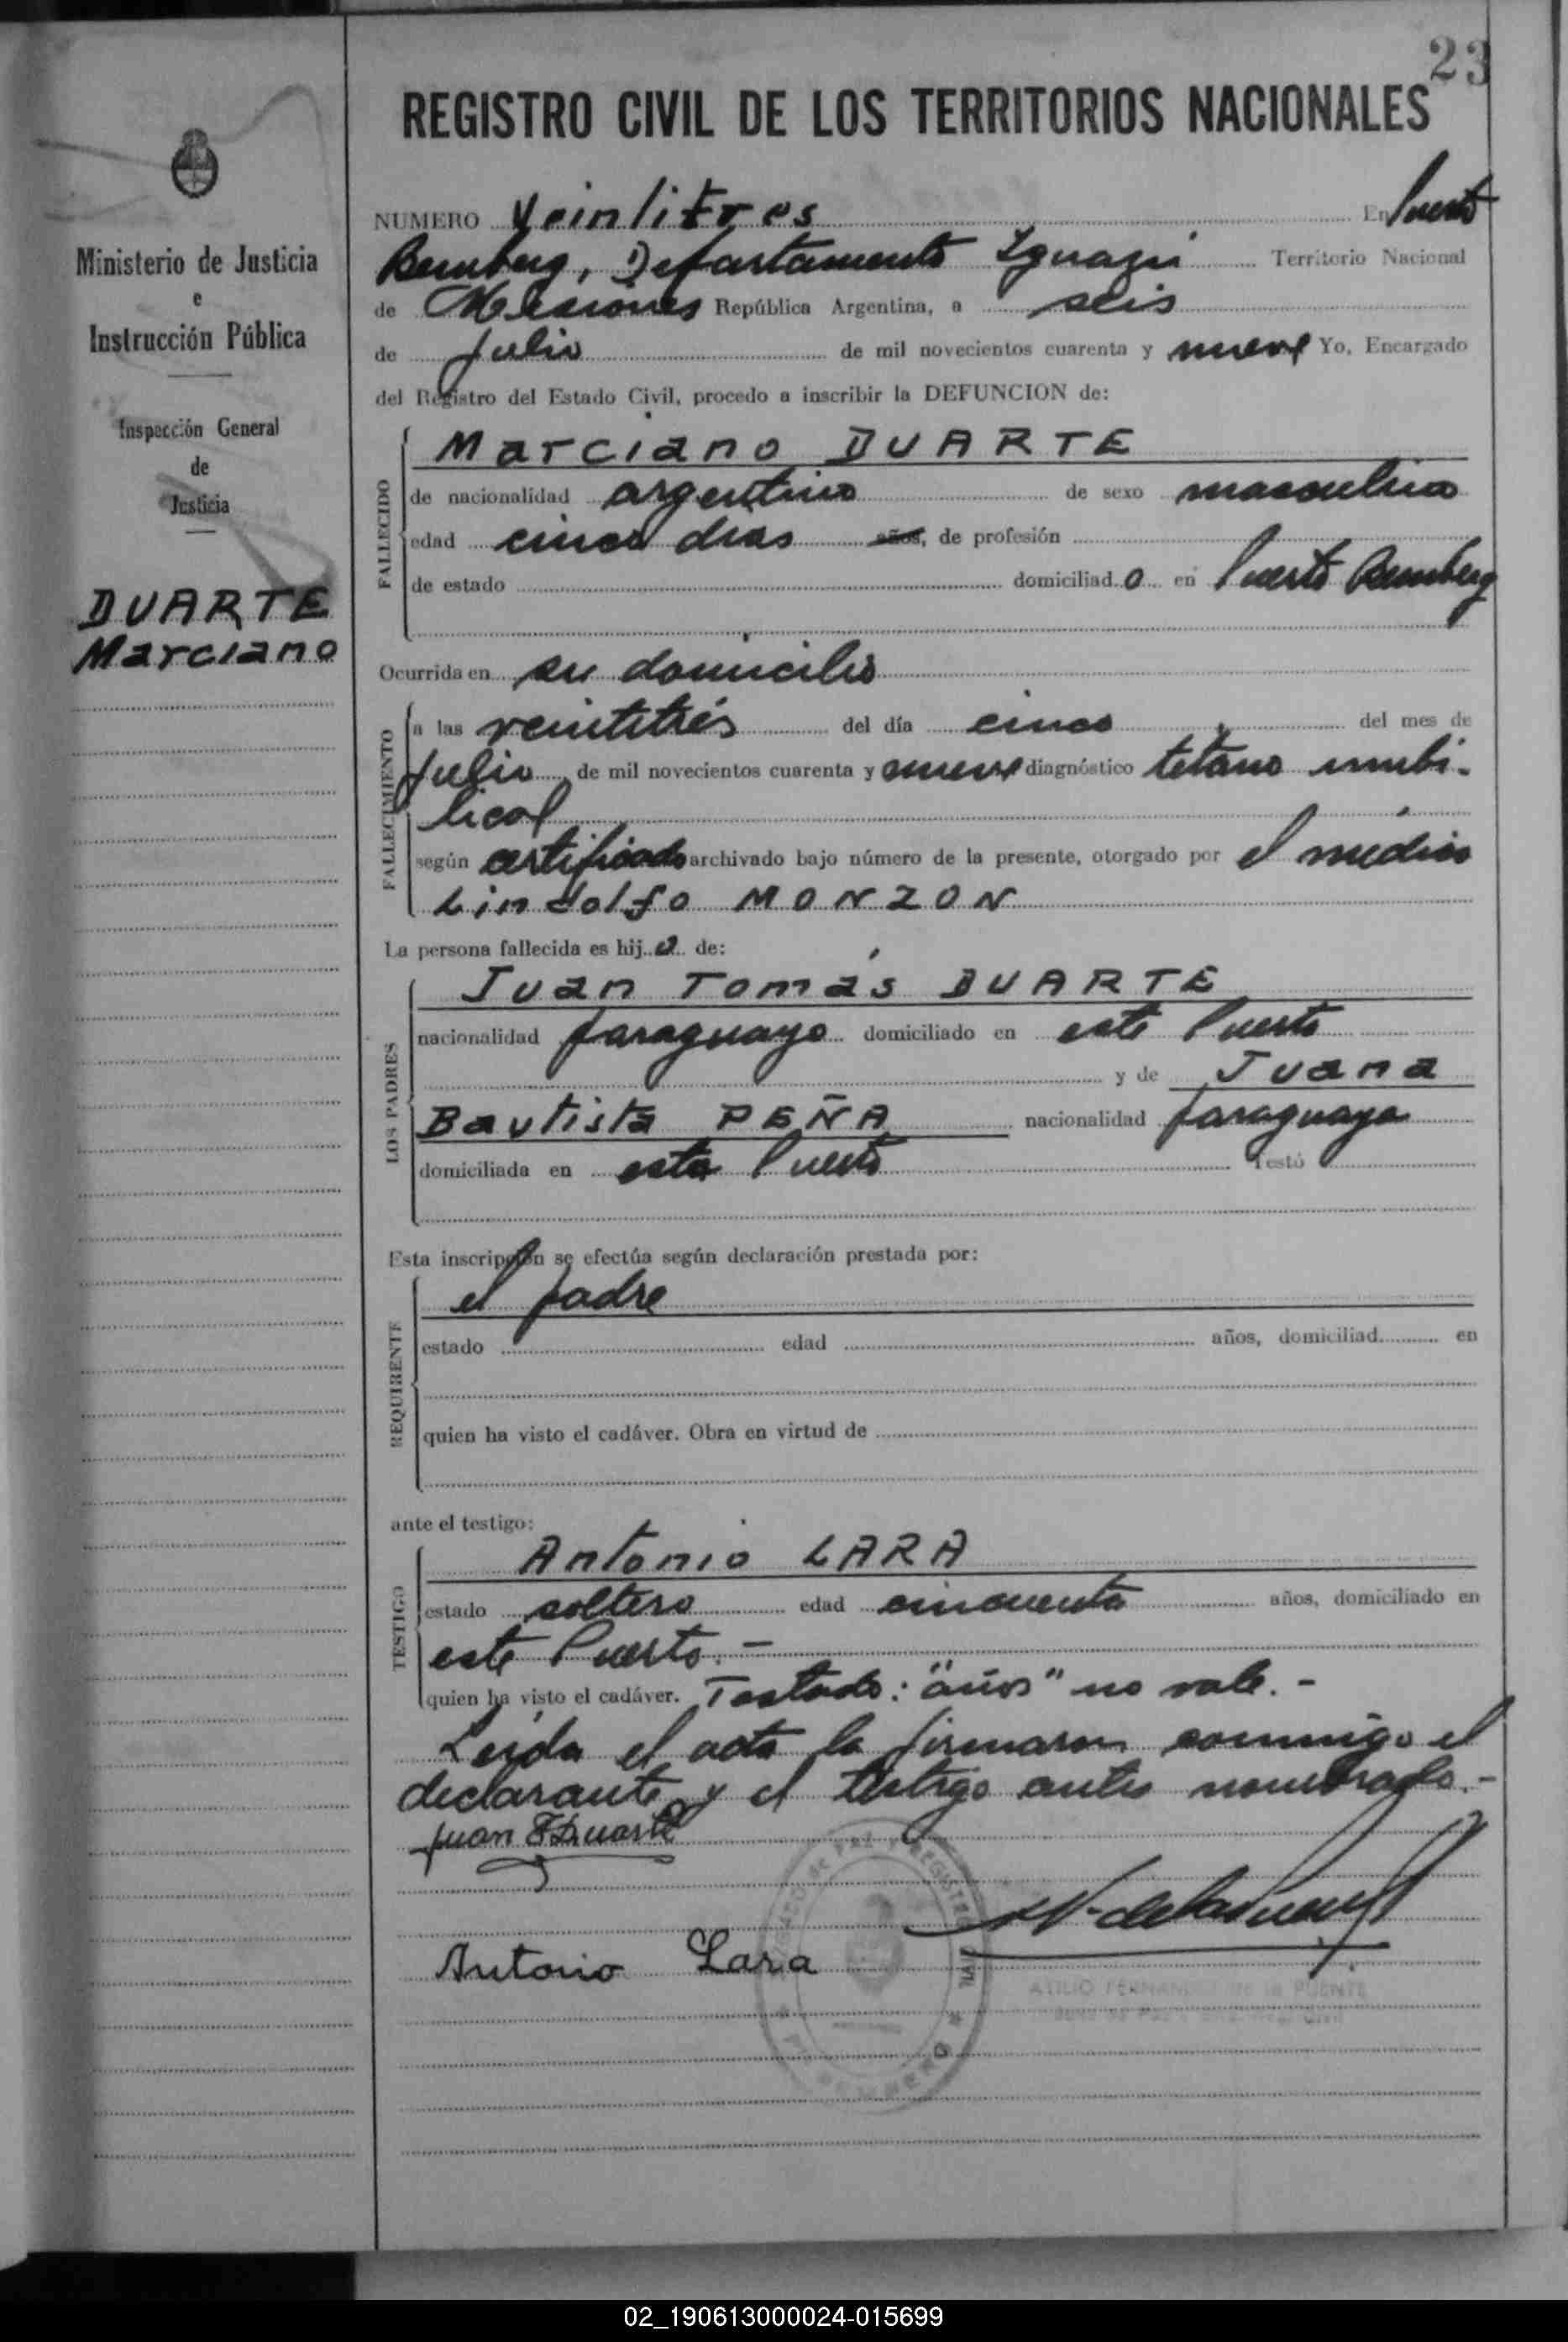 23
REGISTRO CIVIL DE LOS TERRITORIOS NACIONALES
Ministerio de Justicia
e
Instrucción Pública
Inspección General
de
Justicia
DUARTE
Marciano
NUMERO Veintitres En Puerto
Bemberg, Departamento Iguazú Territorio Nacional
de Misiones República Argentina, a seis
de Julio de mil novecientos cuarenta y nueve Yo, Encargado
del Registro del Estado Civil, procedo a inscribir la DEFUNCION de:
FALLECIDO
Marciano DUARTE
de nacionalidad argentino de sexo masculino
edad cinco dias años, de profesión
de estado domiciliad o en Puerto Bemberg
Ocurrida en su domicilio
FALLECIMIENTO
a las veintitrés del día cinco del mes de
Julio de mil novecientos cuarenta y nueve diagnóstico tétano umbi-
lical
según certificado archivado bajo número de la presente, otorgado por el médico
Lindolfo MONZON
La persona fallecida es hij o de:
LOS PADRES
Juan Tomás DUARTE
nacionalidad paraguayo domiciliado en este Puerto
y de Juana
Bautista PEÑA nacionalidad paraguaya
domiciliada en este Puerto Testó
Esta inscripción se efectúa según declaración prestada por:
REQUIRENTE
el padre
estado edad años, domiciliad en
quien ha visto el cadáver. Obra en virtud de
ante el testigo:
TESTIGO
Antonio LARA
estado soltero edad cincuenta años, domiciliado en
este Puerto.-
quien ha visto el cadáver. Testado: "años" no vale.-
Leída el acta la firmaron conmigo el
declarante y el testigo antes nombrado.-
Juan T Duarte
Antonio Lara
ATILIO FERNANDEZ de la PUENTE
02_190613000024-015699